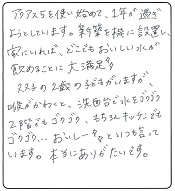 アクアス5を使い始めて、1年が過ぎ
ようとしています。新築を機に設置し、
家にいれば、どこでもおいしい水が
飲めることに大満足♪
2才の子どもがいますが、
喉がかわくと、洗面台で水をゴクゴク
2階でもゴクゴク、もちろんキッチンでも
ゴクゴク…おいしーなぁといつも言って
います。本当にありがたいです。